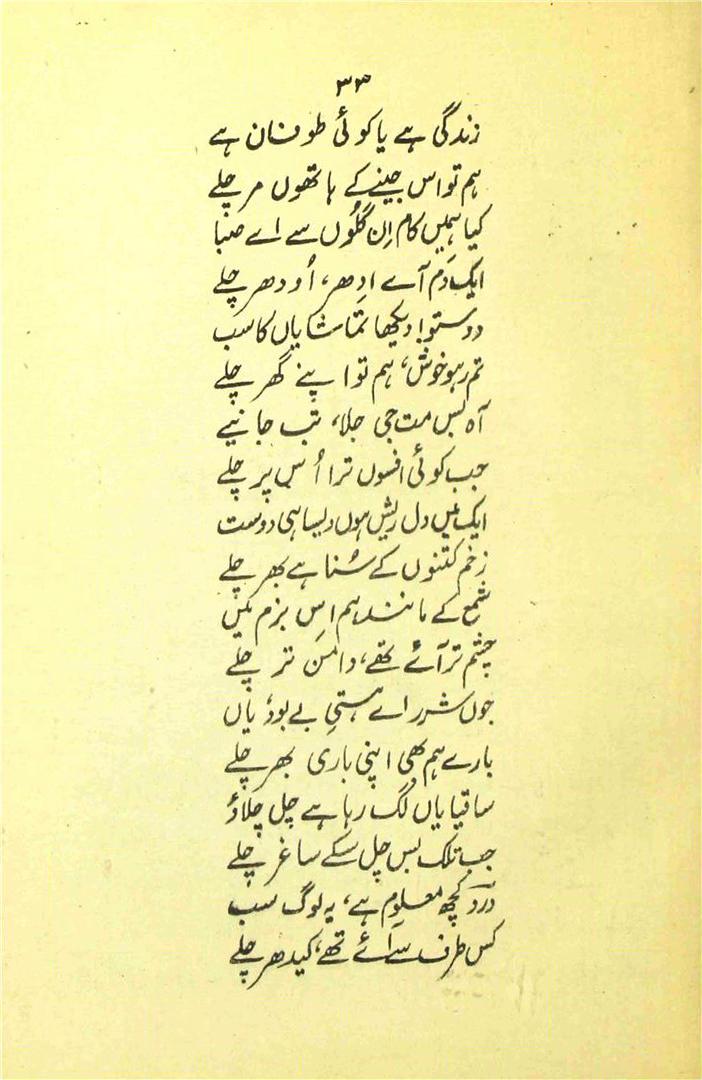 ۳۳
زندگی ہے یا کوئی طوفان ہے
ہم تو اس جینے کے ہاتھوں مر چلے
کیا ہمیں کام اِن گُلوں سے اے صبا
ایک دَم آے اِدھر، اُودھر چلے
دوستو! دیکھا تماشا یاں کا سب
تم رہو خوش، ہم تو اپنے گھر چلے
آہ بس مت جی جلا، تب جانیے
جب کوئی افسوں ترا اُس پر چلے
ایک میں دل ریش ہوں ویسا ہی دوست
زخم کتنوں کے سُنا ہے بھر چلے
شمع کے مانند ہم اس بزم میں
چشم تر آئے تھے، دامن تر چلے
جوں شرر اے ہستیِ بے بود یاں
بارے ہم بھی اپنی باری بھر چلے
ساقیا یاں لگ رہا ہے چل چلاؤ
جب تلک بس چل سکے ساغر چلے
درد کچھ معلوم ہے، یہ لوگ سب
کس طرف سے آئے تھے، کیدھر چلے